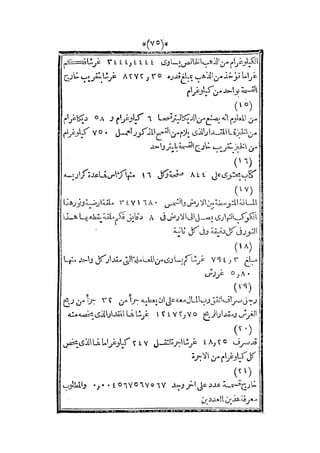 *(٧٥)*
الكيلوغرام من الذهب الخالص يساوى ٣٤٤٤٫٤٤٤٤ غرشا فكم
غراما تؤخذ من الذهب بمبلغ قدره ٨٢٧٢٫٣٥ غرشا بتقريب خارج
القسمة بواحد من كيلوغرام
(١٥)
من المعلوم انه يصنع من الدكاليتر قمحا ٦ كيلوغرام و ٥٨ ديكاغرام
من الخبز فما المقدار الذى يلزم من القمح المذكور لعمل ٧٥٠ كيلوغرام
من الخبز بتقريب خارج القسمة بليتر واحد
(١٦)
كتاب يحتوى على ٨٤٤ صفحة وكل ١٦ منها كراس فما عدة كراريسه
(١٧)
المسافة المتوسطة بين الارض والشمس ٣٤٧١٦٨٠ ملقة ارضية ونور هذا
الكوكب النهارى يصل الى الارض فى ٨ دقايق فكم ملقة يقطعها هذا
النور فى كل دقيقة وفى كل ثانية
(١٨)
مبلغ ٧٩٤٫٣ غرشا كم يساوى من المعاملة التى مقدار كل واحد منها
٥٫٨٠ غروش
(١٩)
رجل صراف اتفق رب المال معه على ان يعطيه جزأ من ٣٢ جزأ من ربح
الغرش ومقدار الربح ١٢٤٧٢٫٧٥ غرشا فما المقدار الذى يخصه منه
(٢٠)
قد صرف ٤٨٫٢٥ غرشا اجرة لنقل ٢٤٧ كيلوغراما فما الذى يخص
كل كيلوغرام من الاجرة
(٢١)
خارج قسمة عدد على اخر وجد ٠٫٠٠٤٥٦٧٥٦٧٥٦٧ والمطلوب
معرفة هذين العددين